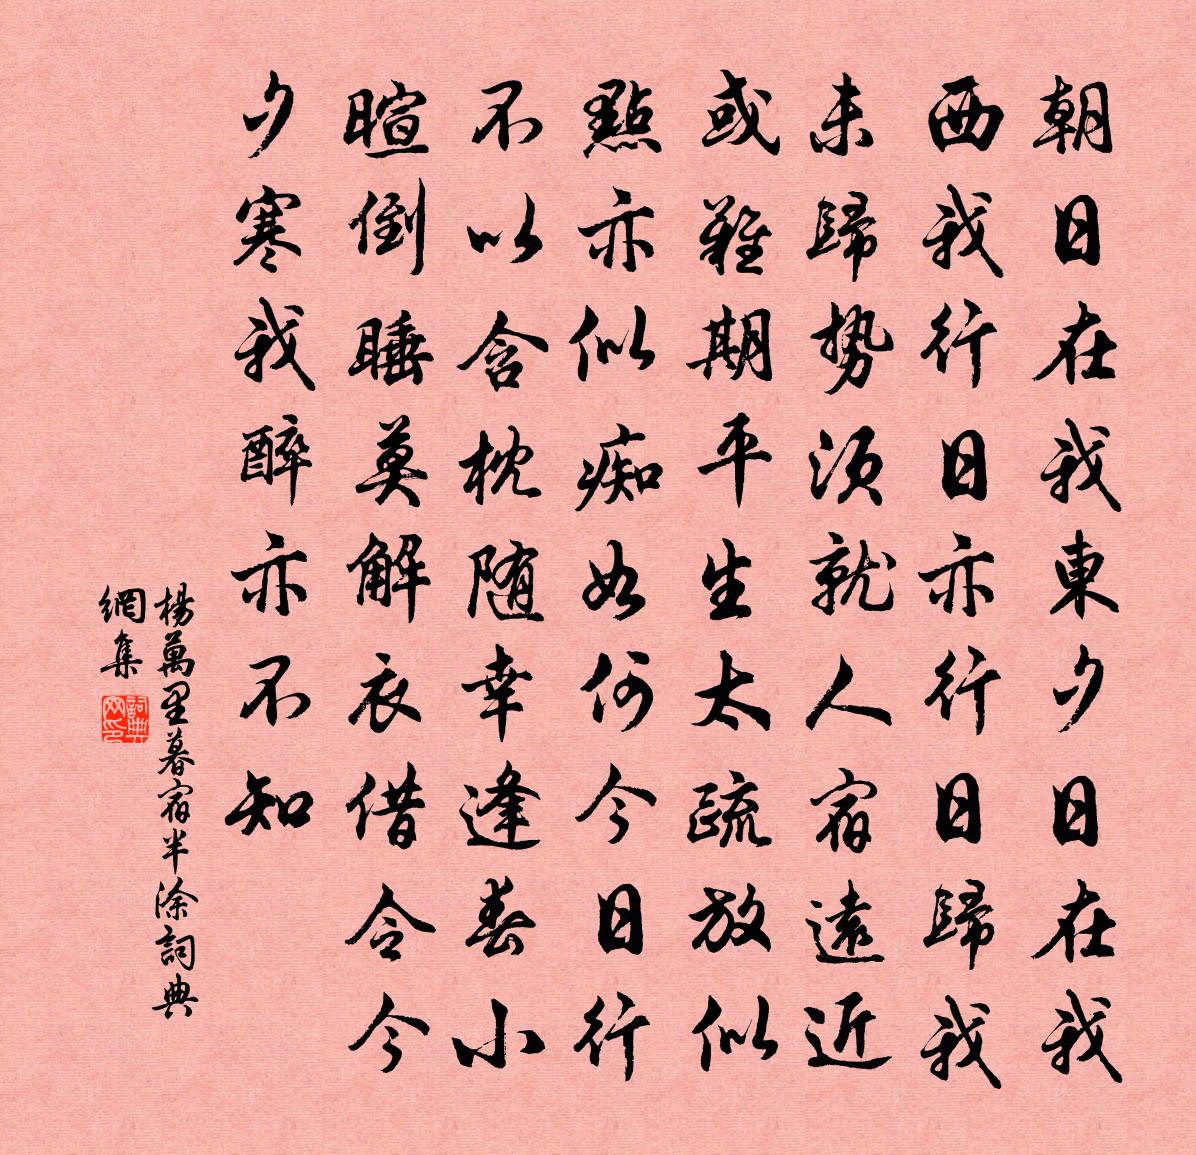 朝日在我東夕日在我
西我行日亦行日歸我
未歸势須就人宿遠近
或難期平生太疏放似
點亦似痴如何今日行
不以含枕随幸逢春小
暄倒睡莫解衣借令今
夕寒我醉亦不知
楊萬里暮宿半涂詞典
網集
詞典
网印